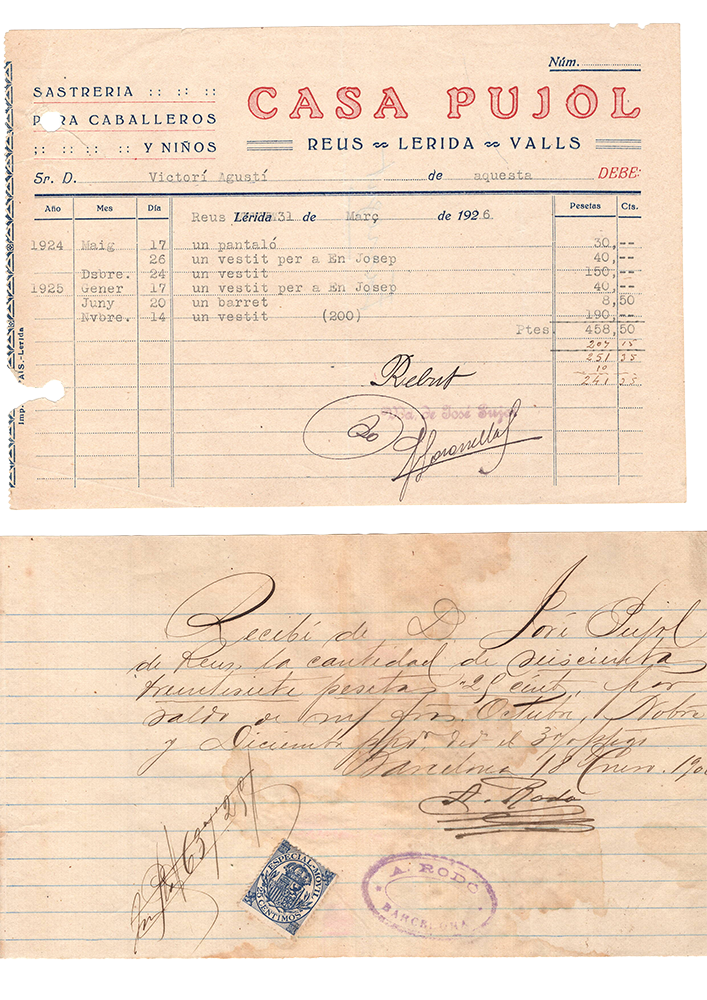 Núm.
SASTRERIA :: :: ::
PARA CABALLEROS
:: :: :: :: Y NIÑOS
CASA PUJOL
REUS ∾ LERIDA ∾ VALLS
Sr. D. Victorí Agustí de aquesta DEBE:
Año Mes Día Reus Lérida 31 de Març de 1926. Pesetas Cts.
1924 Maig 17 un pantaló 30,--
26 un vestit per a En Josep 40,--
Dsbre. 24 un vestit 150,--
1925 Gener 17 un vestit per a En Josep 40,--
Juny 20 un barret 8,50
Nvbre. 14 un vestit (200) 190,--
Ptes. 458,50
207 15
251 35
10
241 35
Rebut
Vda. de José Pujol
Imp. PAÍS.-Lerida
Recibí de D. José Pujol
de Reus la cantidad de seiscientas
treintisiete pesetas 25 cént, por
saldo de m/ Octubre, Nobre
y Diciembre
Barcelona 18 Enero
A. Rodó
ESPECIAL-MOVIL
CENTIMOS
A. RODÓ
BARCELONA